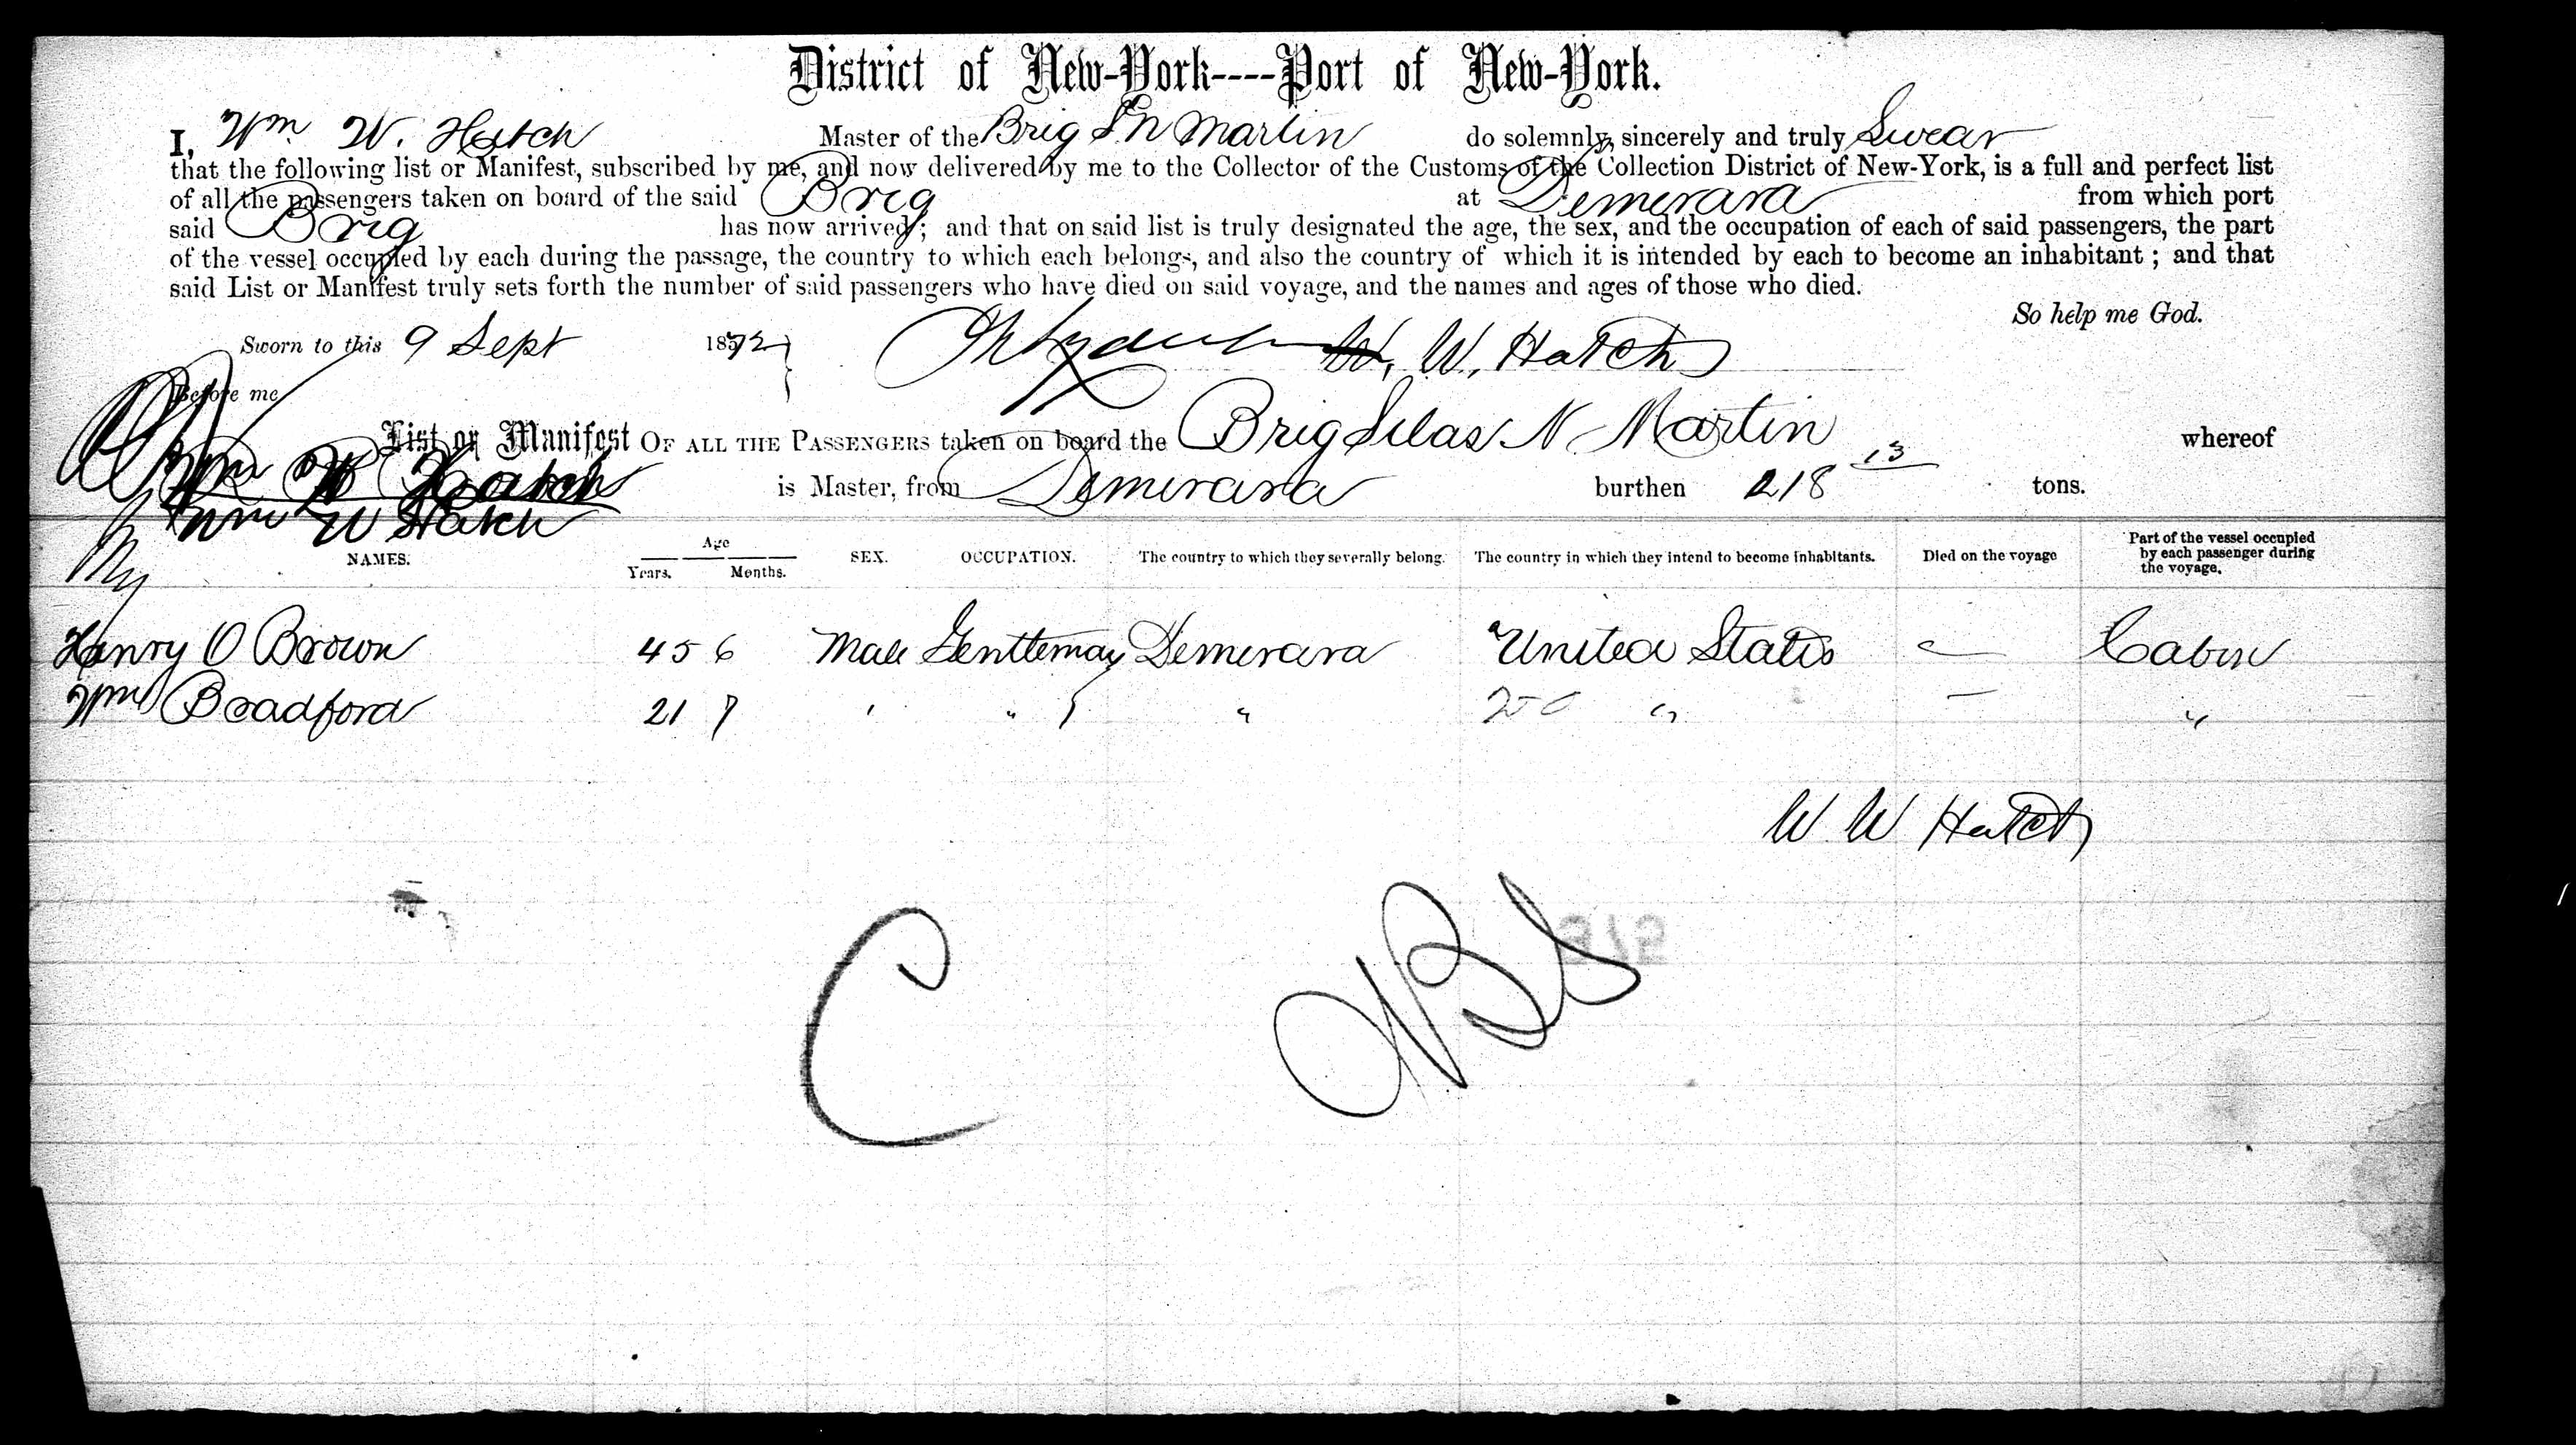 District of New-York----Port of New-York.
I, Wm W. Hatch Master of the Brig S N Martin do solemnly, sincerely and truly Swear
that the following list or Manifest, subscribed by me, and now delivered by me to the Collector of the Customs of the Collection District of New-York, is a full and perfect list
of all the passengers taken on board of the said Brig at Demerara from which port
said Brig has now arrived; and that on said list is truly designated the age, the sex, and the occupation of each of said passengers, the part
of the vessel occupied by each during the passage, the country to which each belongs, and also the country of which it is intended by each to become an inhabitant; and that
said List or Manifest truly sets forth the number of said passengers who have died on said voyage, and the names and ages of those who died.
So help me God.
Sworn to this 9 Sept 1872 W. W. Hatch
Before me
List or Manifest OF ALL THE PASSENGERS taken on board the Brig Silas N Martin whereof
Wm W Hatch is Master, from Demerara burthen 218 13 tons.
Wm W Hatch
NAMES. Age Years. Months. SEX. OCCUPATION. The country to which they severally belong. The country in which they intend to become inhabitants. Died on the voyage Part of the vessel occupied by each passenger during the voyage.
Henry O Brown 45 6 Male Gentleman Demerara United States — Cabin
Wm Bradford 21 7 " " " " — "
W W Hatch
C